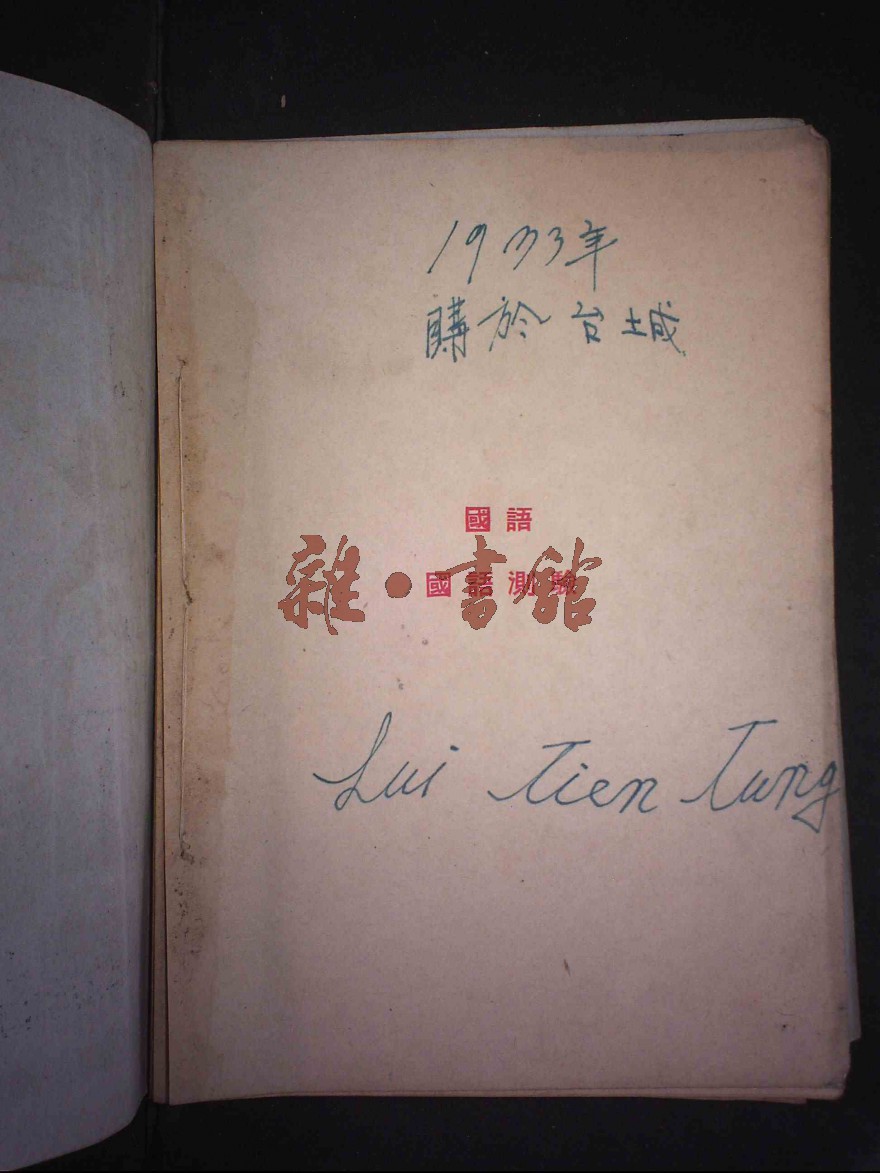 1933年
購於台城
國語
雜·書館
國語測驗
Lui Tien Tung